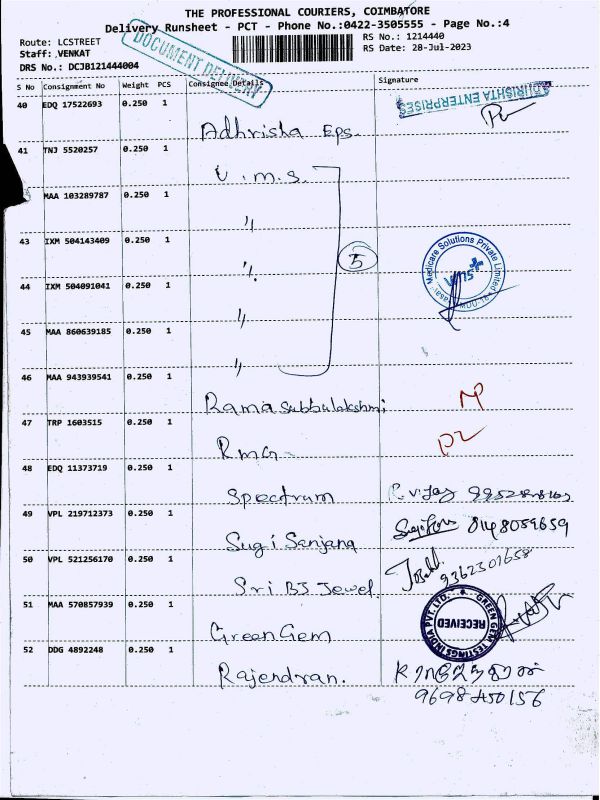 THE PROFESSIONAL COURIERS, COIMBATORE
Delivery Runsheet - PCT - Phone No.:0422-3505555 - Page No.:4
Route: LCSTREET
RS No.: 1214440
Staff: .VENKAT
RS Date: 28-Jul-2023
DRS No.: DCJB121444004
DOCUMENT DELIVERY
S No Consignment No Weight PCS Consignee Details Signature
40 EDQ 17522693 0.250 1
ADHRISHTA ENTERPRISES
Adhrishta Eps.
41 TNJ 5520257 0.250 1
V.m.s.
MAA 103289787 0.250 1
"
43 IXM 504143409 0.250 1
5
Medicare Solutions Private Limited
VMS
".
44 IXM 504091041 0.250 1
"
45 MAA 860639185 0.250 1
"
46 MAA 943939541 0.250 1
Rama Subbulakshmi
47 TRP 1603515 0.250 1
RMG
48 EDQ 11373719 0.250 1
Spectrum R. vijay
49 VPL 219712373 0.250 1
Sugi Sanjana 8148059659
50 VPL 521256170 0.250 1
Sri BJ Jewel. 9362301658
51 MAA 570857939 0.250 1
GREEN GEM TESTINGS INDIA PVT. LTD.
RECEIVED
GreenGem
52 DDG 4892248 0.250 1
Rajendran.
9698450156